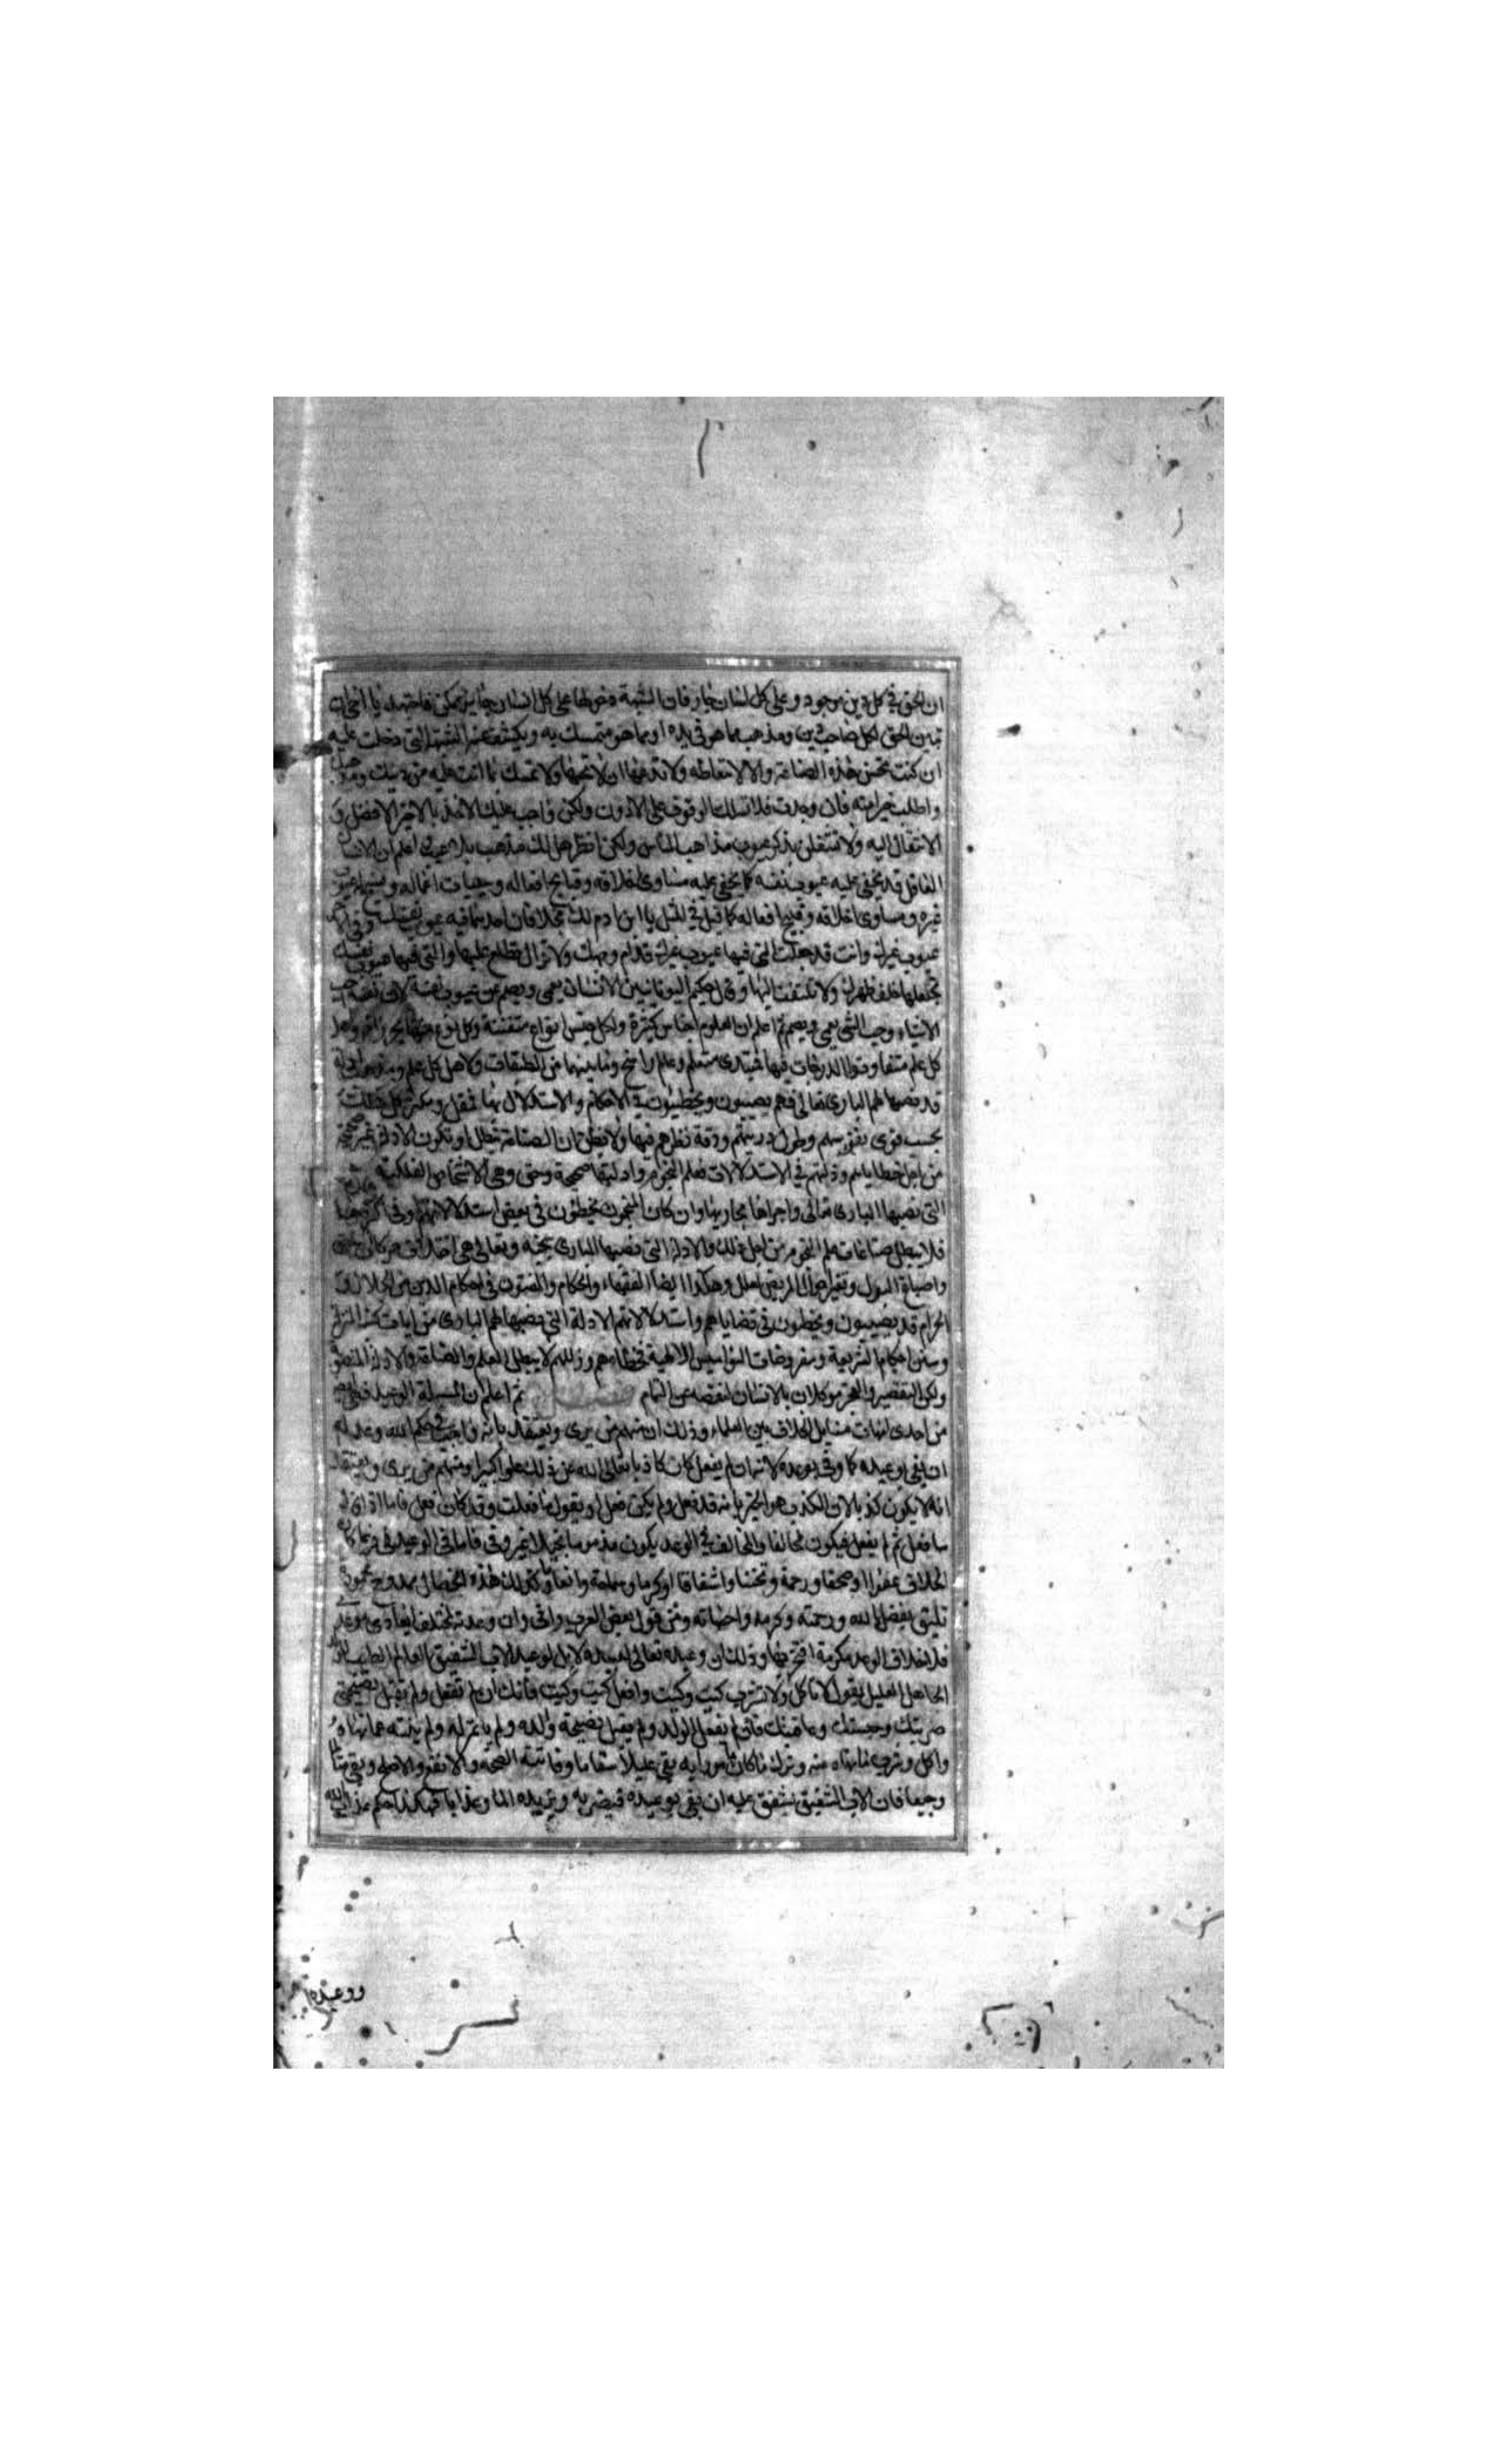 ان الحق في كل دين موجود وعلى كل لسان جار وان الشبهة دخولها على كل انسان جايز ممكن فاجتهد يا اخي ان
تبين الحق لكل صاحب دين ومذهب مما هو في يده او مما هو متمسك به وتكشف عنه الشبهة التي دخلت عليه
ان كنت تحسن هذه الصناعة والا لا تتعاطه ولا تدعها ان لا تحسنها ولا تمسك بما انت عليه من دينك ومذهبك
واطلب خيرا منه فان وجدت فلا يسلك الوقوف على الادون ولكن واجب عليك الاخذ بالاخير الافضل و
الانتقال اليه ولا تشتغلن بذكر عيوب مذاهب الناس ولكن انظر هل لك مذهب بلا عيب اعلم ان الانسان
العاقل قد يخفى عليه عيوب نفسه كما يخفى عليه مساوى اخلاقه وقبايح افعاله وسيات اعماله وتبين له عيوب
غيره ومساوى اخلاقه وقبيح افعاله كما قيل في المثل يا ابن ادم لك مخلاتان احديهما فيه عيوب نفسك وفي اخر
عيوب غيرك وانت قد جعلت التي فيها عيوب غيرك قدام وجهك ولا تزال تطلع عليها والتي فيها عيوب نفسك
تجعلها خلف ظهرك ولا تلتفت اليها وقال حكيم اليونانيين الانسان يعمى ويصم عن عيوب نفسه لان نفسه احب
الاشياء وحب الشي يعمى ويصم ثم اعلم ان العلوم اجناس كثيرة ولكل جنس انواع متفننة وكل نوع منها بحر زاخر واهل
كل علم متفاوتوا الدرجات فيها مبتدى متعلم وعالم راسخ وما بينهما من الطبقات ولاهل كل علم ومذهب ادلة
قد نصبها لهم البارى تعالى فهم يصيبون ويخطئون في الاحكام والاستدلال بها تقل وتكثر كل ذلك
بحسب قوى نفوسهم وطول دربتهم ودقة نظرهم فيها ولا تظن ان الصناعة تبطل او تكون الادلة غير صحيحة
من اجل خطاياهم وزلتهم في الاستدلالات فعلم النجوم وادلتها صحيحة وحق وهي الاشخاص الفلكية
التي نصبها البارى تعالى واجراها مجاريها وان كان المنجمون يخطئون في بعض استدلالاتهم او في اكثرها
فلا يبطل صناعات علم النجوم من اجل ذلك والادلة التي نصبها البارى سبحانه وتعالى هي اختلاف حركات
واصباغ البول وتغير احوال المريض العلل وهكذا ايضا الفقهاء والحكام والمفتون في احكام الدين من الحلال و
الحرام قد يصيبون ويخطون في قضاياهم واستدلالاتهم الادلة التي نصبها لهم البارى من ايات كتبه المنزلة
وسنن احكام الشريعة ومفروضات النواميس الالهية فخطاهم وزللهم لا يبطل العلم والصناعة والادلة المنصوبة
ولكن التقصير والعجز موكلان بالانسان لنقصه عن التمام فصل ثم اعلم ان المسئلة الوعيد
من احدى امهات مسايل الخلاف بين العلماء وذلك ان منهم من يرى ويعتقد بانه واجب في حكم الله وعدله
ان يفي وعيده كما وفى بوعده لانه ان لم يفعل كان كاذبا تعالى الله عن ذلك علوا كبيرا ومنهم من يرى ويعتقد
انه لا يكون كذبا لان الكذب هو الخبر بانه قد فعل ولم يكن فعل او يقول ما فعلت وقد كان فعل فاما اذا قال
سافعل ثم لم يفعل فيكون مخالفا والمخالف في الوعد يكون مذموما بخيلا غير وفى فاما في الوعيد فربما كان
الخلاف عفوا وصفحا ورحمة وتحننا واشفاقا وكرما وسماحة وانعاما وكل هذه الخصال ممدوح محمودة
تليق بفضل الله ورحمته وكرمه واحسانه ومن قول بعض العرب واني وان وعدته لمخلف ايعادى
فلا خلاف الوعد مكرمة افتخر بها وذلك ان وعيده تعالى لعبيده لا بل لوعيد الاب الشفيق العالم الطبيب
الجاهل العليل يقول لا تاكل ولا تشرب كيت وكيت وافعل كيت وكيت فانك ان لم تفعل ولم تقبل نصيحتي
ضربتك وحبستك وعاقبتك فان لم يفعل الولد ولم يقبل نصيحة والده ولم ياتمر له ولم ينته عما نهاه
واكل وشرب ما نهاه منه وترك ما كان امر به بقى عليلا سقاما وفاتته الصحة
وجيعا فان الاب الشفيق يشفق عليه ان يفي بوعيده فيضربه ويزيده الما وعذابا فهكذا حكم عذاب الله
ووعيده